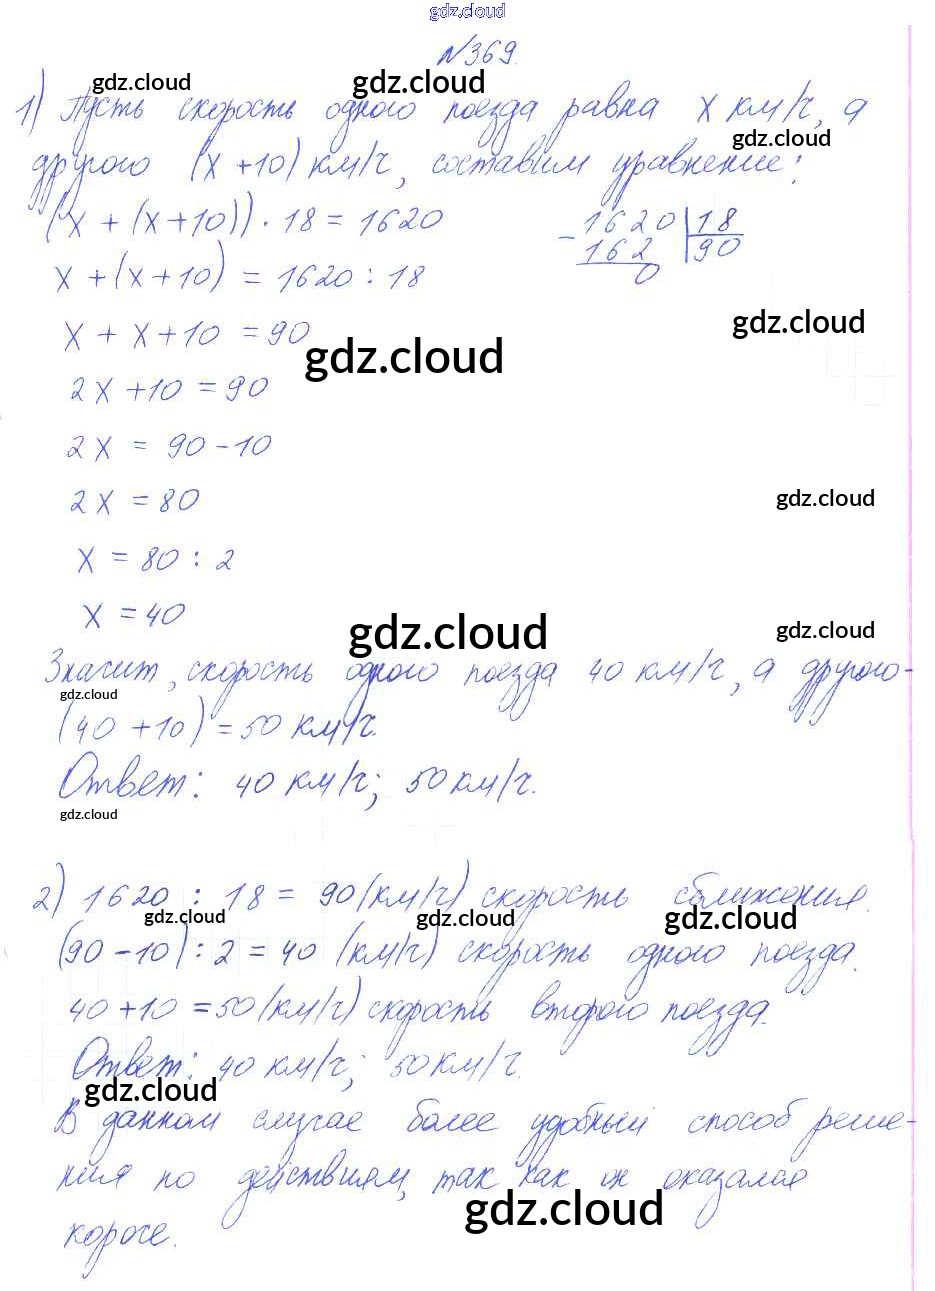 gdz.cloud
№369.
gdz.cloud gdz.cloud
1) Пусть скорость одного поезда равна x км/ч, а
gdz.cloud
другого (x+10) км/ч, составим уравнение:
(x + (x+10)) · 18 = 1620
- 1620 | 18
162 90
0
x + (x+10) = 1620 : 18
x + x + 10 = 90
gdz.cloud
gdz.cloud
2x + 10 = 90
2x = 90 - 10
2x = 80
gdz.cloud
x = 80 : 2
x = 40
gdz.cloud gdz.cloud
Значит, скорость одного поезда 40 км/ч, а другого-
gdz.cloud
(40 + 10) = 50 км/ч.
Ответ: 40 км/ч; 50 км/ч.
gdz.cloud
2) 1620 : 18 = 90 (км/ч) скорость сближения.
gdz.cloud gdz.cloud gdz.cloud
(90 - 10) : 2 = 40 (км/ч) скорость одного поезда.
40 + 10 = 50 (км/ч) скорость второго поезда.
Ответ: 40 км/ч; 50 км/ч.
gdz.cloud
В данном случае более удобный способ реше-
ния по действиям, так как он оказался
gdz.cloud
короче.